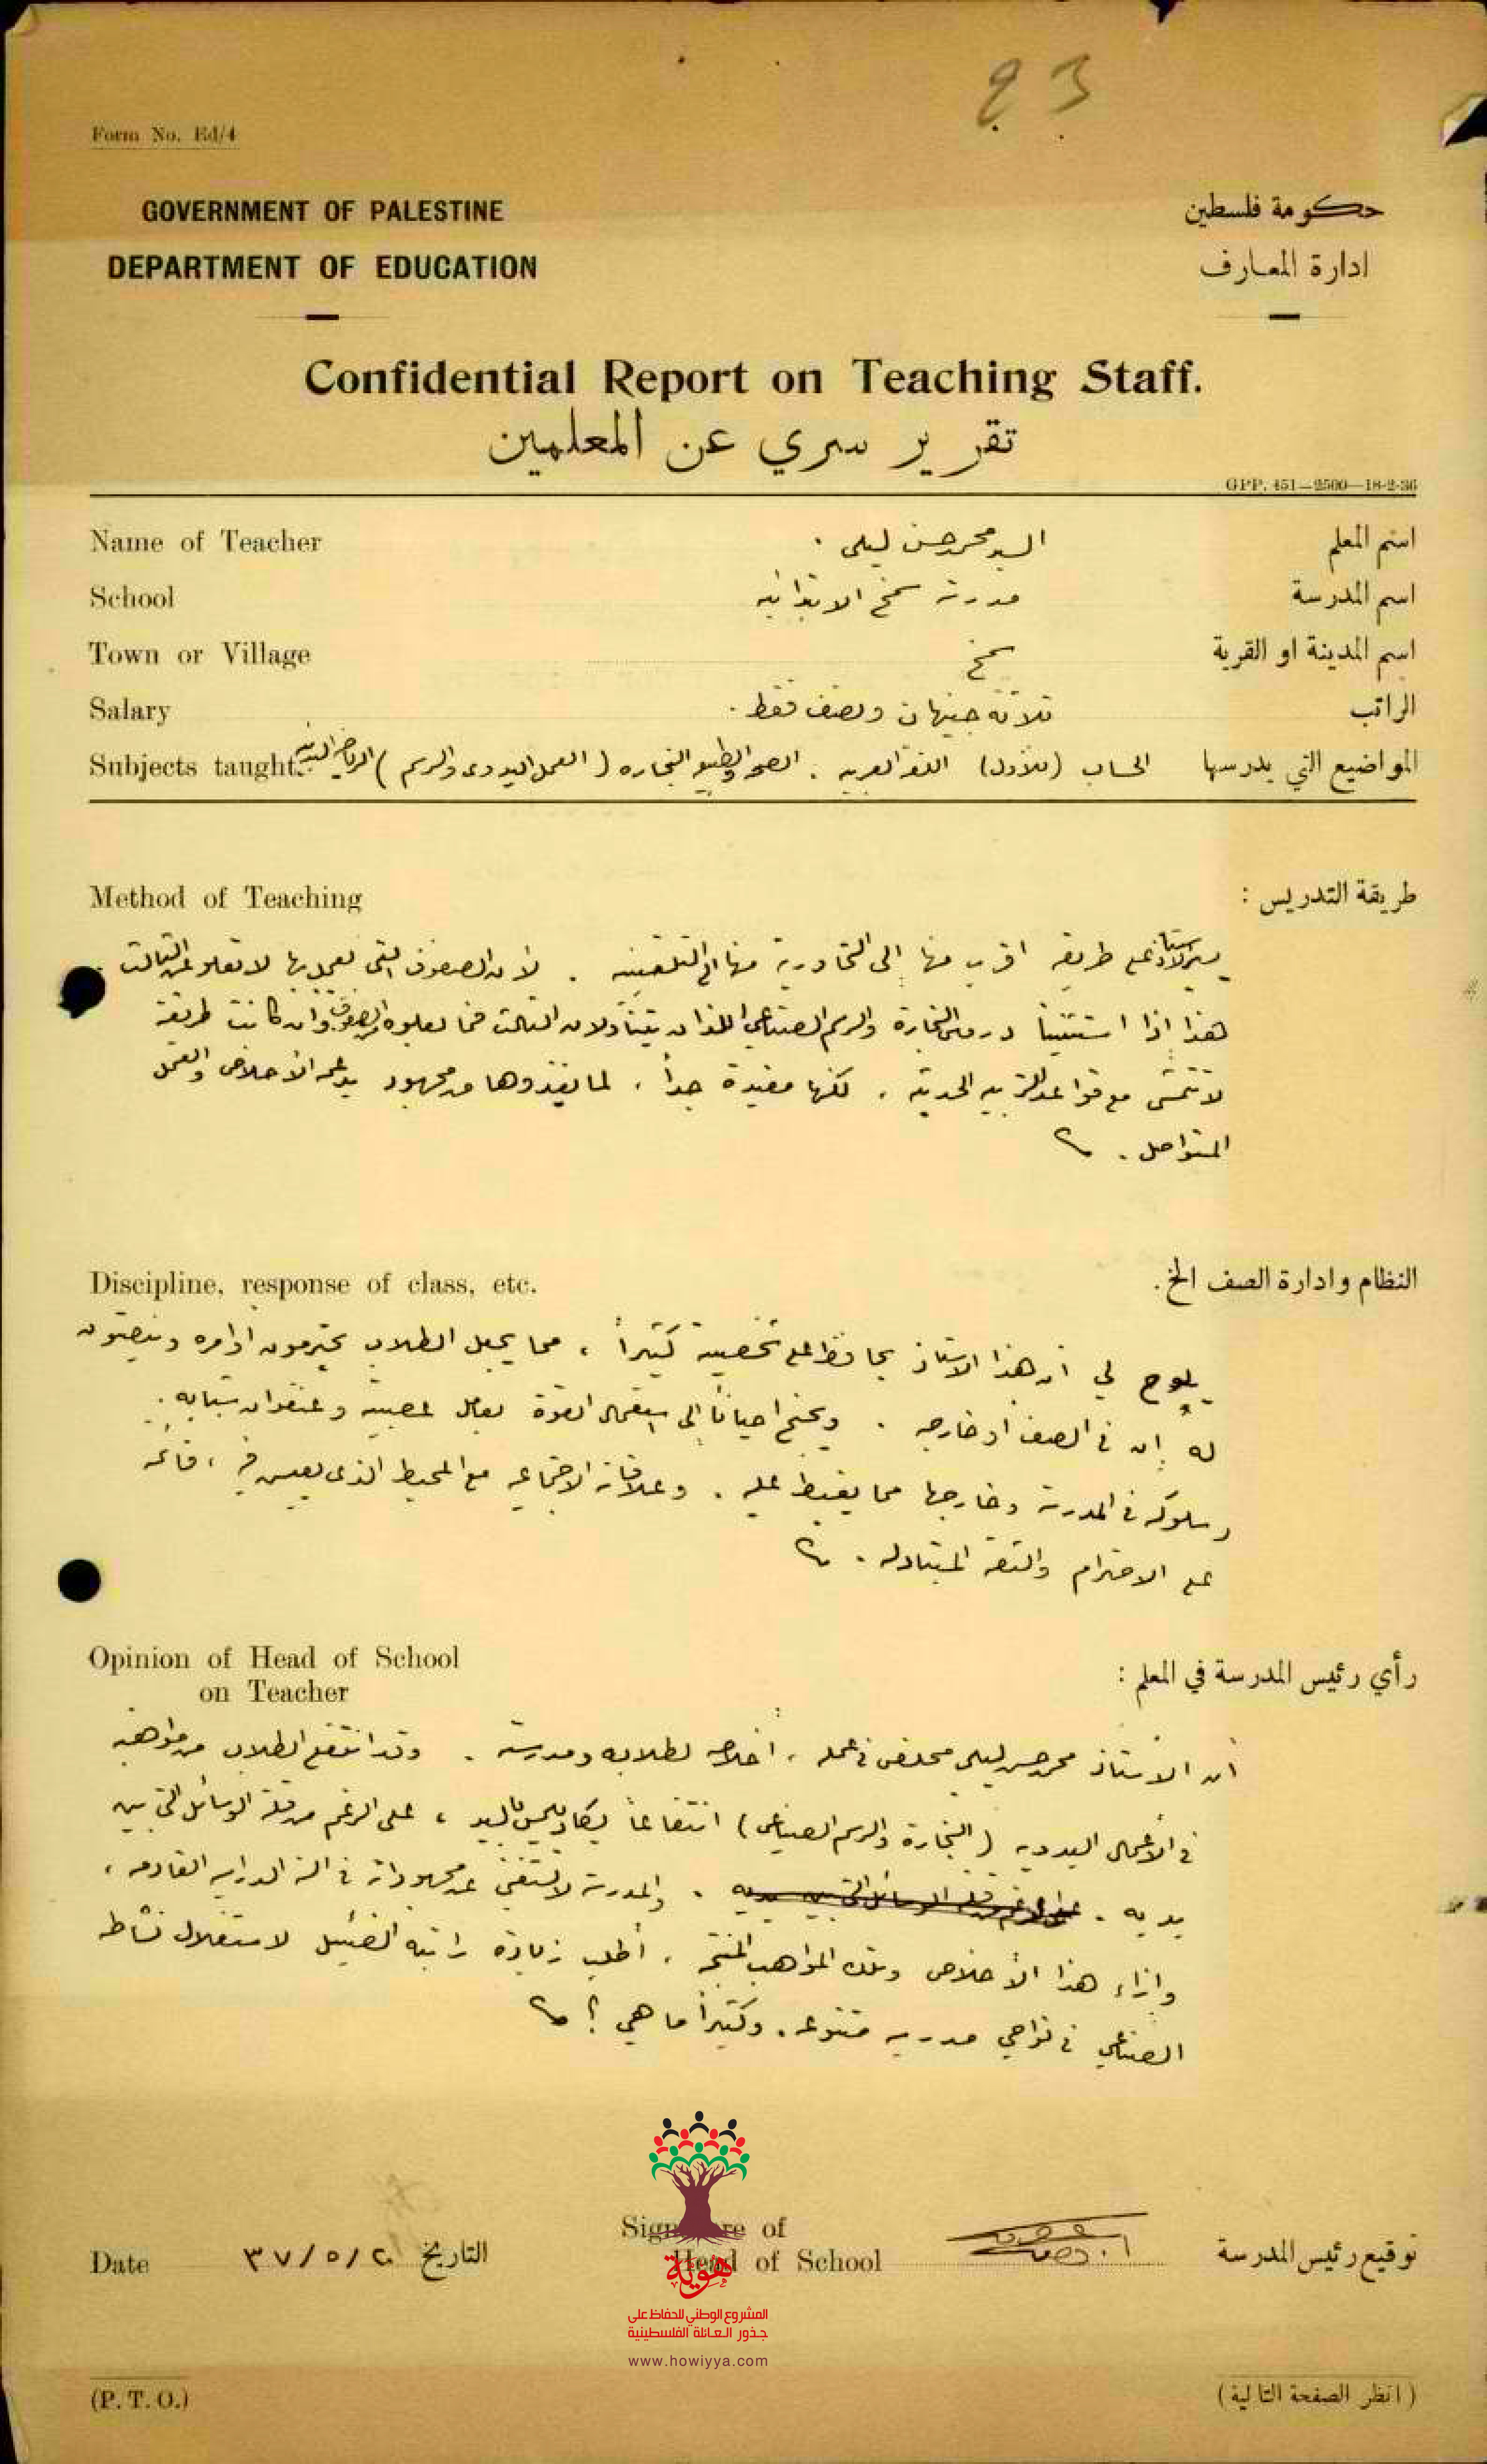 Form No. Ed/4
GOVERNMENT OF PALESTINE
حكومة فلسطين
DEPARTMENT OF EDUCATION
ادارة المعارف
Confidential Report on Teaching Staff.
تقرير سري عن المعلمين
GPP. 451—2500—18-2-36
Name of Teacher السيد محمد حسن ليلى . اسم المعلم
School مدرسة سمخ الابتدائيه اسم المدرسة
Town or Village سمخ اسم المدينة او القرية
Salary ثلاثة جنيهات ونصف فقط . الراتب
Subjects taught المواضيع التي يدرسها الحساب (للأول) اللغة العربيه . الصحه والطبيعه النجاره (العمل اليدوي والرسم) الرياضه البدنيه
Method of Teaching طريقة التدريس :
يسير الاستاذ على طريقه اقرب منها إلى التحاورية منها إلى التلقينيه . لأن الصفوف التي يعمل بها لا تعلو عن الثالث .
هذا إذا استثنينا درسي النجارة والرسم الصناعي اللذان يتناولان الثالث فما يعلوه من الصفوف وان كانت طريقة
لا تتمشى مع قواعد التربيه الحديثه . لكنها مفيدة جداً ، لما يغذوها من مجهود يدعمه الأخلاص والعمل
المتواصل .
Discipline, response of class, etc. النظام وادارة الصف الخ.
يلوح لي أن هذا الاستاذ يحافظ على شخصيته كثيراً ، مما يجعل الطلاب يحترمون اوامره وينصتون
له إن في الصف او خارجه . ويجنح احياناً إلى استعمال القوة بعامل عصبيته وعنفوان شبابه .
وسلوكه في المدرسة وخارجها مما يغبط عليه . وعلاقاته الاجتماعيه مع المحيط الذي يعيش فيه ، قائمه
على الاحترام والثقة المتبادله .
Opinion of Head of School رأي رئيس المدرسة في المعلم :
on Teacher
أن الأستاذ محمد حسن ليلى مخلص في عمله ، أخلاصه لطلابه ومدرسته . وقد انتفع الطلاب من مواهبه
في الأعمال اليدويه (النجارة والرسم الصناعي) انتفاعاً يكاد يلمس باليد ، على الرغم من قلة الوسائل التي بين
يديه . والمدرسة لا تستغني عن مجهوداته في السنة الدراسيه القادمه ،
وإزاء هذا الأخلاص وتلك المواهب المنتجه ، أطلب زيادة راتبه الضئيل لاستغلال نشاطه
الصناعي في نواحي مدرسيه متنوعه . وكثيراً ما هي ؟
Date ٢٠/٥/٣٧ التاريخ
Signature of
Head of School توقيع رئيس المدرسة
هوية
المشروع الوطني للحفاظ على
جذور العائلة الفلسطينية
www.howiyya.com
(P. T. O.) (انظر الصفحة التالية)